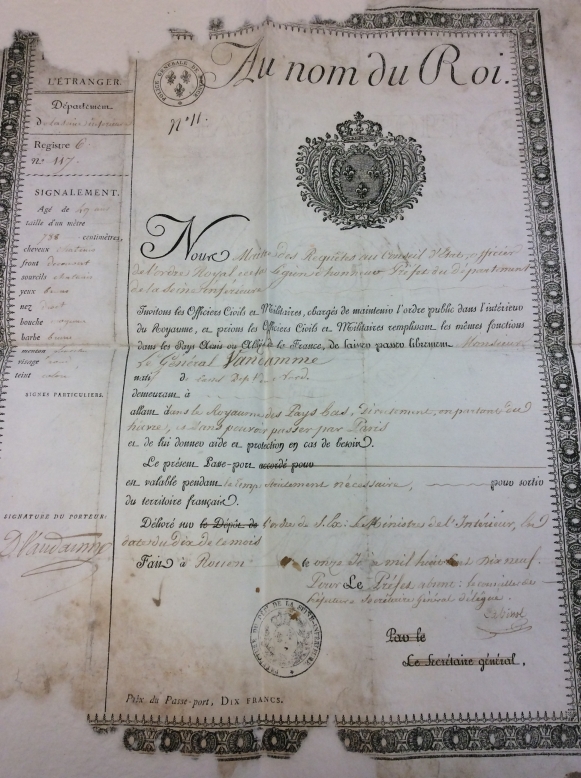 POLICE GÉNÉRALE DE
Au nom du Roi.
N° 11.
L'ÉTRANGER.
Département
de la Seine inférieure
Registre 6
n° 117.
SIGNALEMENT.
Agé de 49 ans
taille d'un mètre
centimètres,
cheveux chatains
front
sourcils chatains
yeux bruns
nez droit
bouche moyenne
barbe brune
menton
visage
teint
SIGNES PARTICULIERS.
SIGNATURE DU PORTEUR
D. Vandamme
Nous Maitre des Requêtes au Conseil d'Etat, officier
de l'ordre Royal de la Légion d'honneur Préfet du département
de la Seine Inférieure
Invitons les Officiers Civils et Militaires, chargés de maintenir l'ordre public dans l'intérieur
du Royaume, et prions les Officiers Civils et Militaires remplissant les mêmes fonctions
dans les Pays Amis ou Alliés de la France, de laisser passer librement Monsieur
Le Général Vandamme
natif de Cassel Dept du Nord
demeurant à
allant dans le Royaume des Pays bas, Directement, en partant du
hâvre, et sans pouvoir passer par Paris
et de lui donner aide et protection en cas de besoin.
Le présent Passe-port accordé pour
est valable pendant le temps strictement nécessaire, pour sortir
du territoire français.
Délivré sur le Dépôt de l'ordre de S. Ex. le Ministre de l'Intérieur, en
date du Dix de ce mois
Fait à Rouen le onze mil huit cent dix neuf.
Pour Le Préfet absent: le conseiller de
Préfecture Secrétaire Général délégué
Par le
Le Secrétaire général.
DE LA SEINE-INFÉRIEURE
Prix du Passe-port, DIX FRANCS.